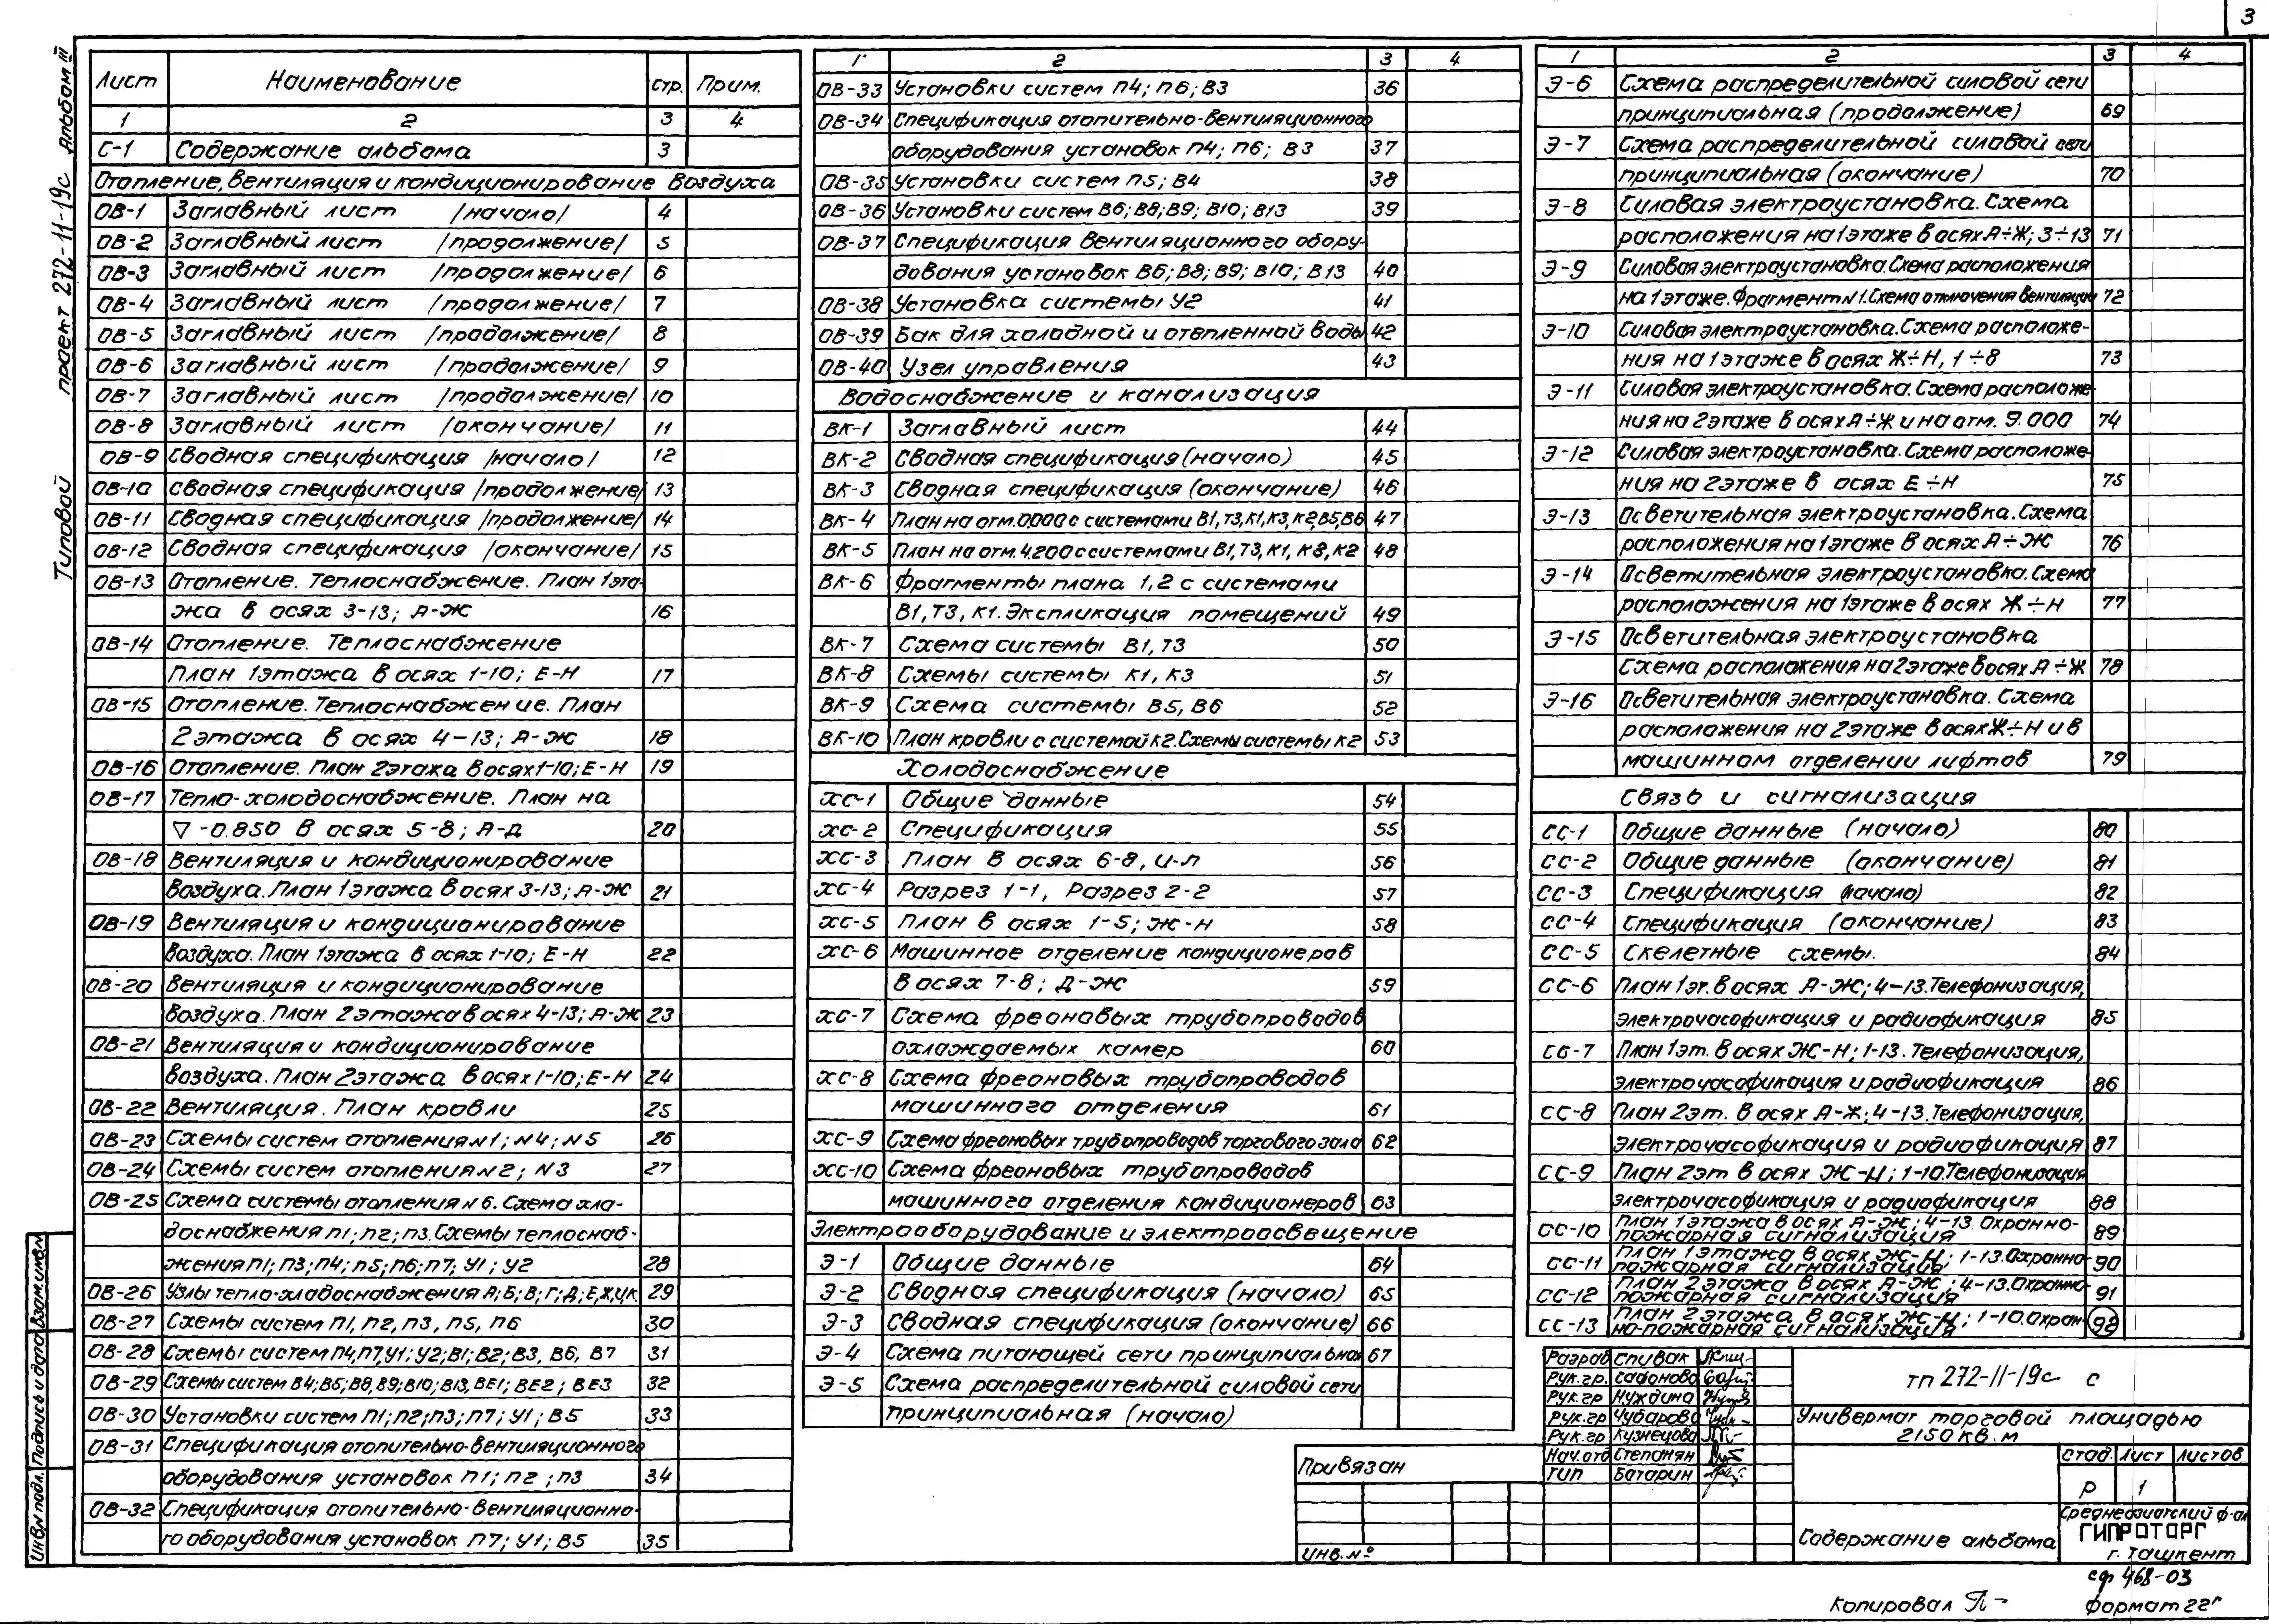 3
Типовой проект 272-11-19с Альбом III
Лист Наименование стр. Прим.
1 2 3 4
С-1 Содержание альбома 3
Отопление, вентиляция и кондиционирование воздуха
ОВ-1 Заглавный лист /начало/ 4
ОВ-2 Заглавный лист /продолжение/ 5
ОВ-3 Заглавный лист /продолжение/ 6
ОВ-4 Заглавный лист /продолжение/ 7
ОВ-5 Заглавный лист /продолжение/ 8
ОВ-6 Заглавный лист /продолжение/ 9
ОВ-7 Заглавный лист /продолжение/ 10
ОВ-8 Заглавный лист /окончание/ 11
ОВ-9 Сводная спецификация /начало/ 12
ОВ-10 Сводная спецификация /продолжение/ 13
ОВ-11 Сводная спецификация /продолжение/ 14
ОВ-12 Сводная спецификация /окончание/ 15
ОВ-13 Отопление. Теплоснабжение. План 1эта-
жа в осях 3-13; А-Ж 16
ОВ-14 Отопление. Теплоснабжение
План 1этажа в осях 1-10; Е-Н 17
ОВ-15 Отопление. Теплоснабжение. План
2этажа в осях 4-13; А-Ж 18
ОВ-16 Отопление. План 2этажа в осях 1-10; Е-Н 19
ОВ-17 Тепло-холодоснабжение. План на
▽ -0.850 в осях 5-8; А-Д 20
ОВ-18 Вентиляция и кондиционирование
воздуха. План 1этажа в осях 3-13; А-Ж 21
ОВ-19 Вентиляция и кондиционирование
воздуха. План 1этажа в осях 1-10; Е-Н 22
ОВ-20 Вентиляция и кондиционирование
воздуха. План 2этажа в осях 4-13; А-Ж 23
ОВ-21 Вентиляция и кондиционирование
воздуха. План 2этажа в осях 1-10; Е-Н 24
ОВ-22 Вентиляция. План кровли 25
ОВ-23 Схемы систем отопления №1; №4; №5 26
ОВ-24 Схемы систем отопления №2; №3 27
ОВ-25 Схема системы отопления №6. Схема хла-
доснабжения П1; П2; П3. Схемы теплоснаб-
жения П1; П3; П4; П5; П6; П7; У1; У2 28
ОВ-26 Узлы тепло-хладоснабжения А; Б; В; Г; Д; Е,Ж,И,К 29
ОВ-27 Схемы систем П1, П2, П3, П5, П6 30
ОВ-28 Схемы систем П4,П7,У1; У2; В1; В2; В3, В6, В7 31
ОВ-29 Схемы систем В4; В5; В8, В9; В10; В13, ВЕ1; ВЕ2; ВЕ3 32
ОВ-30 Установки систем П1; П2; П3; П7; У1; В5 33
ОВ-31 Спецификация отопительно-вентиляционного
оборудования установок П1; П2; П3 34
ОВ-32 Спецификация отопительно-вентиляционно-
го оборудования установок П7; У1; В5 35
1 2 3 4
ОВ-33 Установки систем П4; П6; В3 36
ОВ-34 Спецификация отопительно-вентиляционного
оборудования установок П4; П6; В3 37
ОВ-35 Установки систем П5; В4 38
ОВ-36 Установки систем В6; В8; В9; В10; В13 39
ОВ-37 Спецификация вентиляционного обору-
дования установок В6; В8; В9; В10; В13 40
ОВ-38 Установка системы У2 41
ОВ-39 Бак для холодной и отепленной воды 42
ОВ-40 Узел управления 43
Водоснабжение и канализация
ВК-1 Заглавный лист 44
ВК-2 Сводная спецификация (начало) 45
ВК-3 Сводная спецификация (окончание) 46
ВК-4 План на отм. 0.000 с системами В1, Т3, К1, К3, К2, В5, В6 47
ВК-5 План на отм. 4.200 с системами В1, Т3, К1, К3, К2 48
ВК-6 Фрагменты плана 1,2 с системами
В1, Т3, К1. Экспликация помещений 49
ВК-7 Схема системы В1, Т3 50
ВК-8 Схемы системы К1, К3 51
ВК-9 Схема системы В5, В6 52
ВК-10 План кровли с системой К2. Схемы системы К2 53
Холодоснабжение
ХС-1 Общие данные 54
ХС-2 Спецификация 55
ХС-3 План в осях 6-8, И-Л 56
ХС-4 Разрез 1-1, Разрез 2-2 57
ХС-5 План в осях 1-5; Ж-Н 58
ХС-6 Машинное отделение кондиционеров
в осях 7-8; Д-Ж 59
ХС-7 Схема фреоновых трубопроводов
охлаждаемых камер 60
ХС-8 Схема фреоновых трубопроводов
машинного отделения 61
ХС-9 Схема фреоновых трубопроводов торгового зала 62
ХС-10 Схема фреоновых трубопроводов
машинного отделения кондиционеров 63
Электрооборудование и электроосвещение
Э-1 Общие данные 64
Э-2 Сводная спецификация (начало) 65
Э-3 Сводная спецификация (окончание) 66
Э-4 Схема питающей сети принципиальная 67
Э-5 Схема распределительной силовой сети
принципиальная (начало)
1 2 3 4
Э-6 Схема распределительной силовой сети
принципиальная (продолжение) 69
Э-7 Схема распределительной силовой сети
принципиальная (окончание) 70
Э-8 Силовая электроустановка. Схема
расположения на 1этаже в осях А÷Ж; 3÷13 71
Э-9 Силовая электроустановка. Схема расположения
на 1этаже. Фрагмент №1. Схема отключения вентиляции 72
Э-10 Силовая электроустановка. Схема расположе-
ния на 1этаже в осях Ж÷Н, 1÷8 73
Э-11 Силовая электроустановка. Схема расположе-
ния на 2этаже в осях А÷Ж и на отм. 9.000 74
Э-12 Силовая электроустановка. Схема расположе-
ния на 2этаже в осях Е÷Н 75
Э-13 Осветительная электроустановка. Схема
расположения на 1этаже в осях А÷Ж 76
Э-14 Осветительная электроустановка. Схема
расположения на 1этаже в осях Ж÷Н 77
Э-15 Осветительная электроустановка
Схема расположения на 2этаже в осях А÷Ж 78
Э-16 Осветительная электроустановка. Схема
расположения на 2этаже в осях Ж÷Н и в
машинном отделении лифтов 79
Связь и сигнализация
СС-1 Общие данные (начало) 80
СС-2 Общие данные (окончание) 81
СС-3 Спецификация (начало) 82
СС-4 Спецификация (окончание) 83
СС-5 Скелетные схемы. 84
СС-6 План 1эт. в осях А-Ж; 4-13. Телефонизация,
электрочасофикация и радиофикация 85
СС-7 План 1эт. в осях Ж-Н; 1-13. Телефонизация,
электрочасофикация и радиофикация 86
СС-8 План 2эт. в осях А-Ж; 4-13. Телефонизация,
электрочасофикация и радиофикация 87
СС-9 План 2эт в осях Ж-И; 1-10. Телефонизация
электрочасофикация и радиофикация 88
СС-10 План 1этажа в осях А-Ж; 4-13. Охранно-
пожарная сигнализация 89
СС-11 План 1этажа в осях Ж-И; 1-13. Охранно-
пожарная сигнализация 90
СС-12 План 2этажа в осях А-Ж; 4-13. Охранно-
пожарная сигнализация 91
СС-13 План 2этажа в осях Ж-И; 1-10. Охран-
но-пожарная сигнализация 92
Разраб Спивак
Рук.гр. Сафонова
Рук.гр Нуждина
Рук.гр Чубарова
Рук.гр Кузнецова
Нач.отд Степанян
ГИП Батарин
тп 272-11-19с С
Универмаг торговой площадью
2150 кв.м
стад. Лист Листов
Р 1
Содержание альбома
Среднеазиатский ф-ал
ГИПРОТОРГ
г. Ташкент
Привязан
Инв.№
Инв.№ подл. Подпись и дата Взам.инв.№
сф 468-03
Копировал
Формат 22г